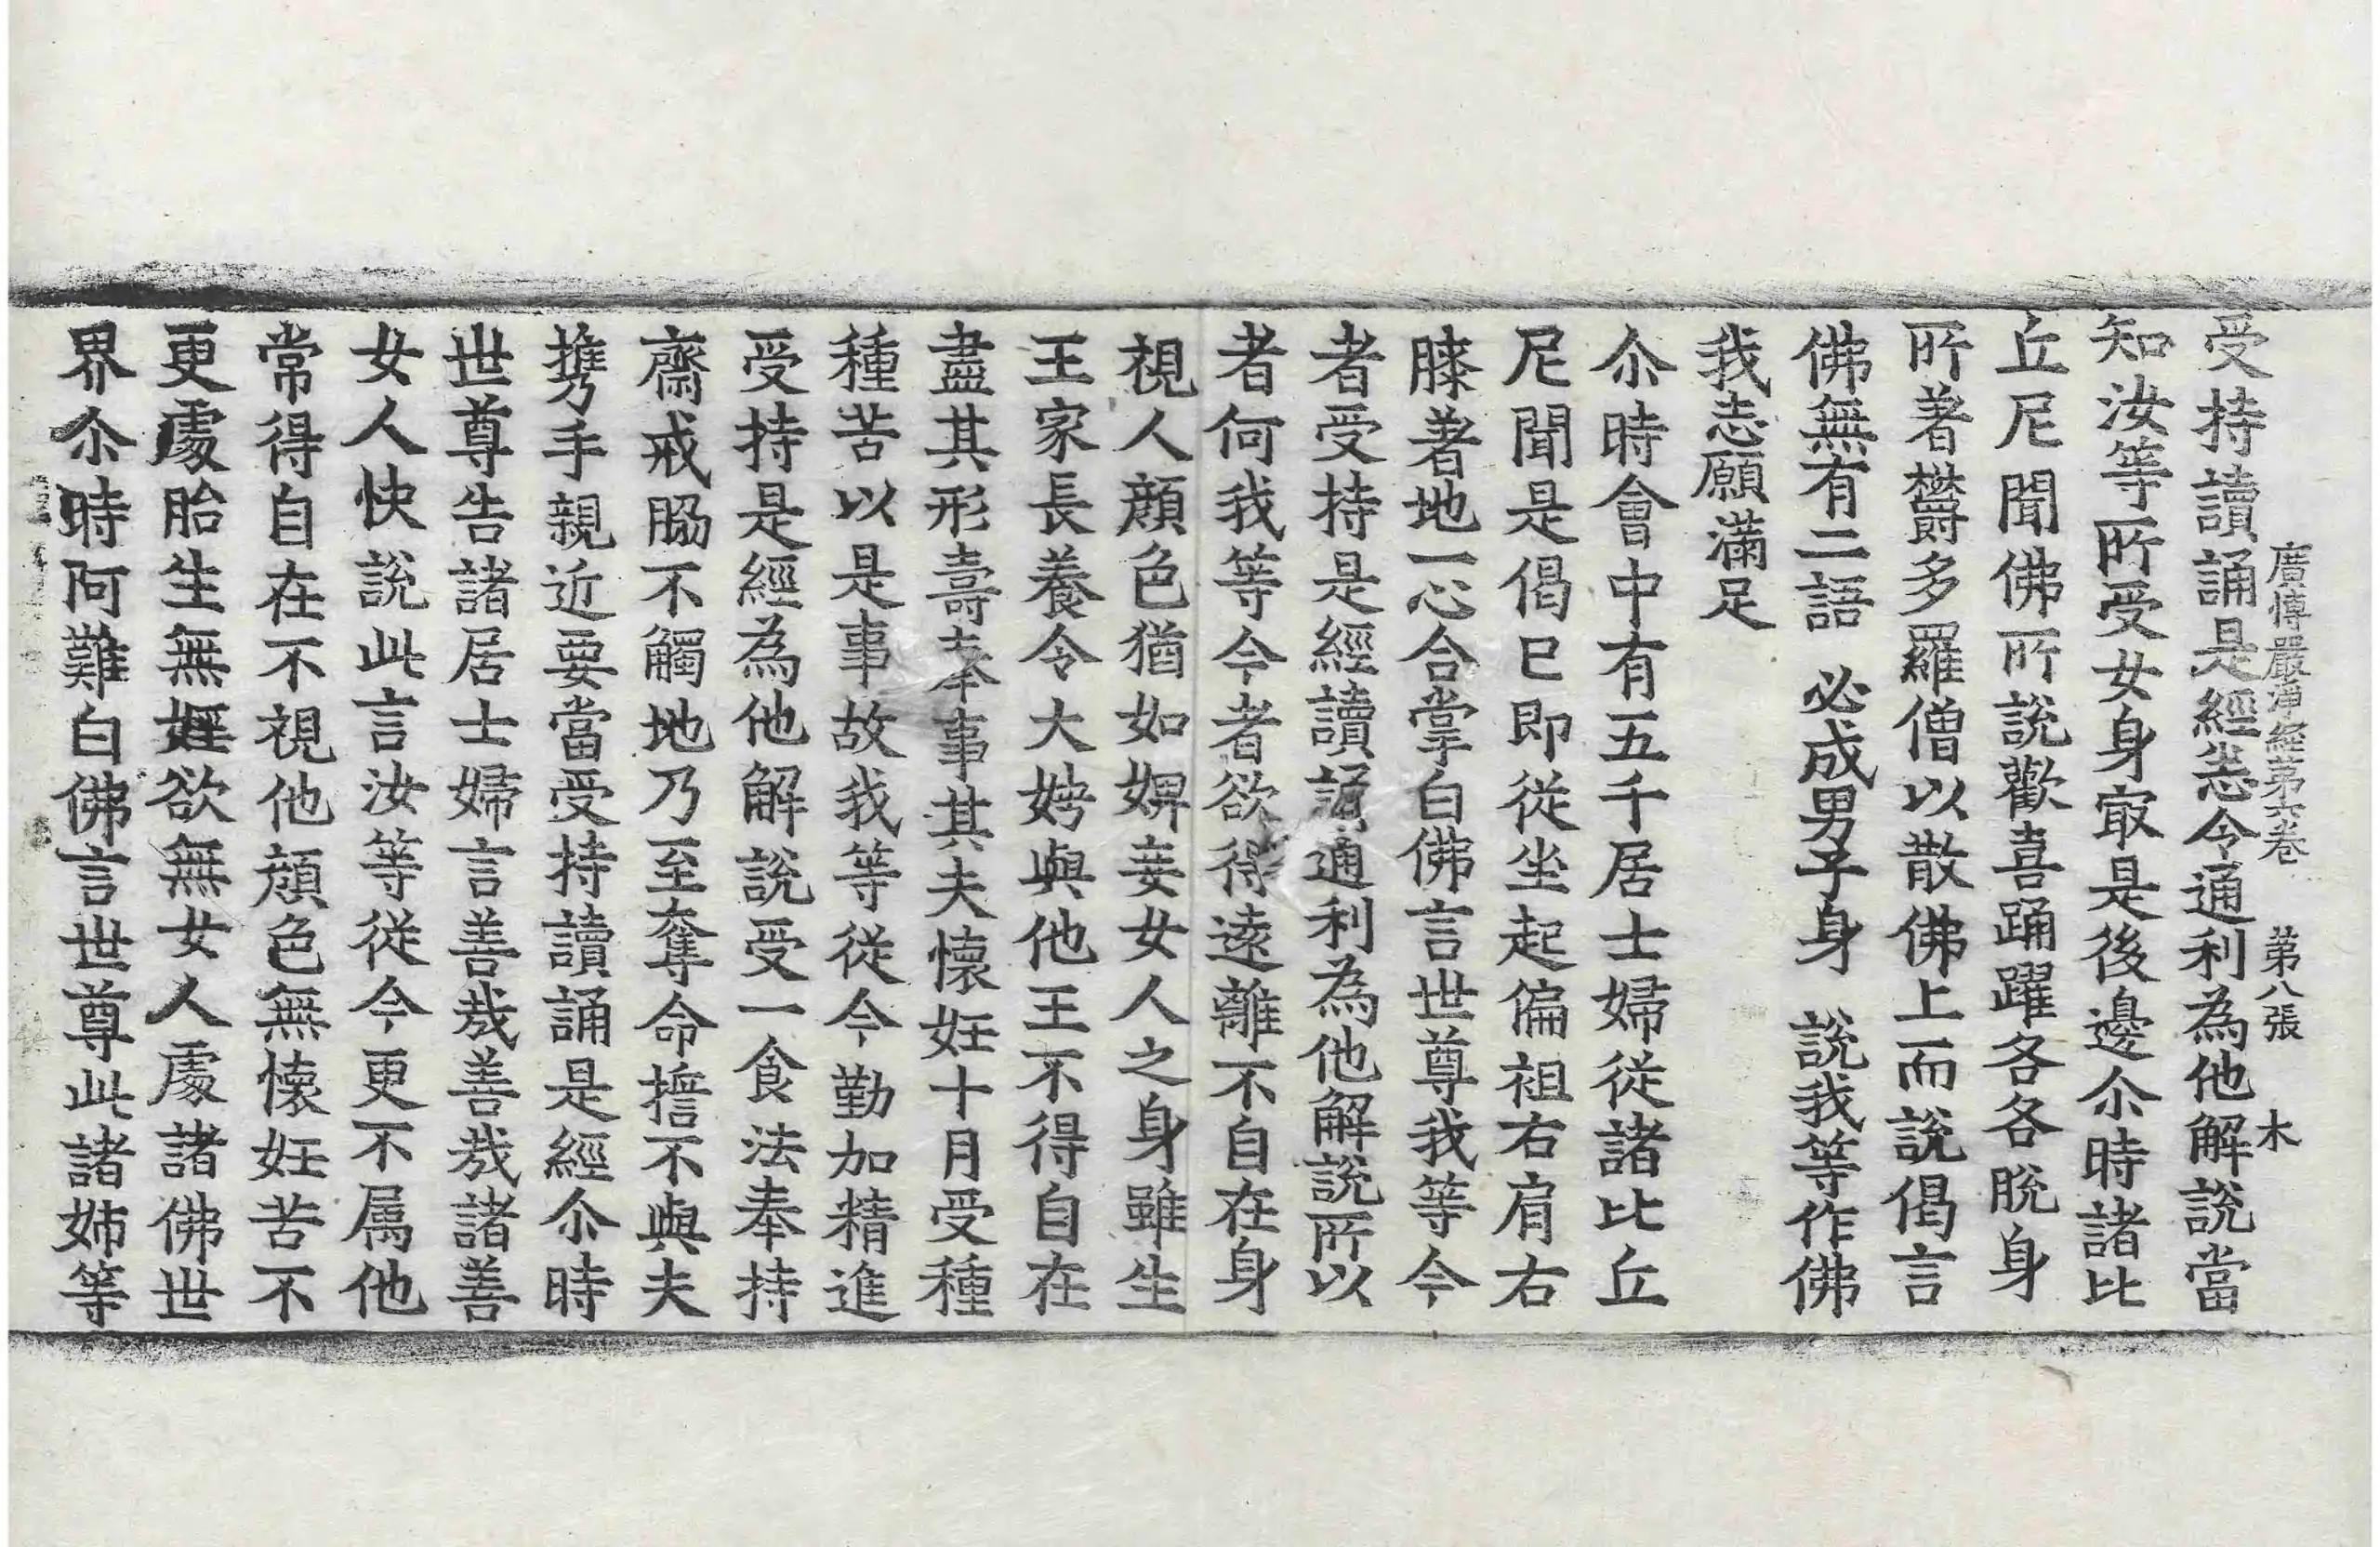 廣博嚴淨經第六卷 第八張 木
受持讀誦是經悉令通利為他解說當
知汝等所受女身㝡是後邊尒時諸比
丘尼聞佛所說歡喜踊躍各各脫身
所著欝多羅僧以散佛上而說偈言
佛無有二語 必成男子身 說我等作佛
我志願滿足
尒時會中有五千居士婦從諸比丘
尼聞是偈已即從坐起偏袒右肩右
膝著地一心合掌白佛言世尊我等今
者受持是經讀誦通利為他解說所以
者何我等今者欲得遠離不自在身
視人顏色猶如婢妾女人之身雖生
王家長養令大娉與他王不得自在
盡其形壽奉事其夫懷妊十月受種
種苦以是事故我等從今勤加精進
受持是經為他解說受一食法奉持
齋戒脇不觸地乃至奪命擔不與夫
携手親近要當受持讀誦是經尒時
世尊告諸居士婦言善哉善哉諸善
女人快說此言汝等從今更不属他
常得自在不視他顏色無懷妊苦不
更處胎生無婬欲無女人處諸佛世
界尒時阿難白佛言世尊此諸姉等